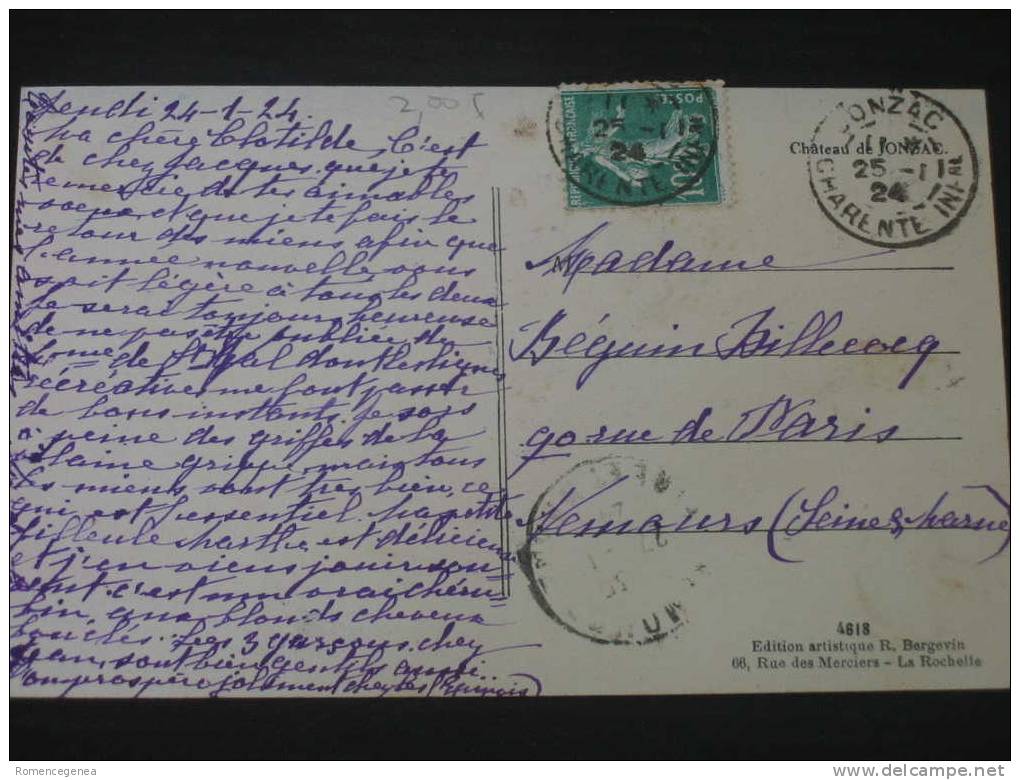 Jeudi 24-1-24.
Ma chère Clotilde, C'est
de chez Jacques que je te
remercie de tes aimables
voeux et que je te fais le
retour des miens afin que
l'année nouvelle vous
soit légère à tous les deux
Je serai toujours heureuse
de ne pas être oubliée de
dont les lignes
récréatives me font passer
de bons instants. Je sors
à peine des griffes de la
vilaine grippe, mais tous
les miens vont très bien, ce
qui est l'essentiel. Ma petite
filleule Marthe est délicieuse
et j'en viens jouir sou-
vent. c'est un vrai chéru-
bin, aux blonds cheveux
bouclés. Les 3 garçons chez
Jean, sont bien gentils aussi.
On prospère joliment chez les
2,00
REPUBLIQUE FRANÇAISE
POSTES
10
JONZAC
25 -1
24
CHARENTE INFRE
Château de JONZAC.
Madame
Béguin Billecocq
90 rue de Paris
Nemours (Seine & Marne)
4618
Edition artistique R. Bergevin
66, Rue des Merciers - La Rochelle
Romencegenea
delcampe.net